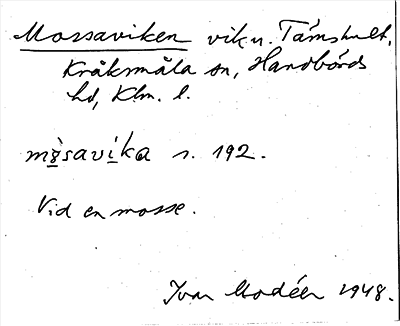 Mossaviken vik u. Tämshult,
Kråksmåla sn, Handbörds
hd, Klm. l.
mò̱savi̱ka s. 192.
Vid en mosse.
Ivar Modéer 1948.